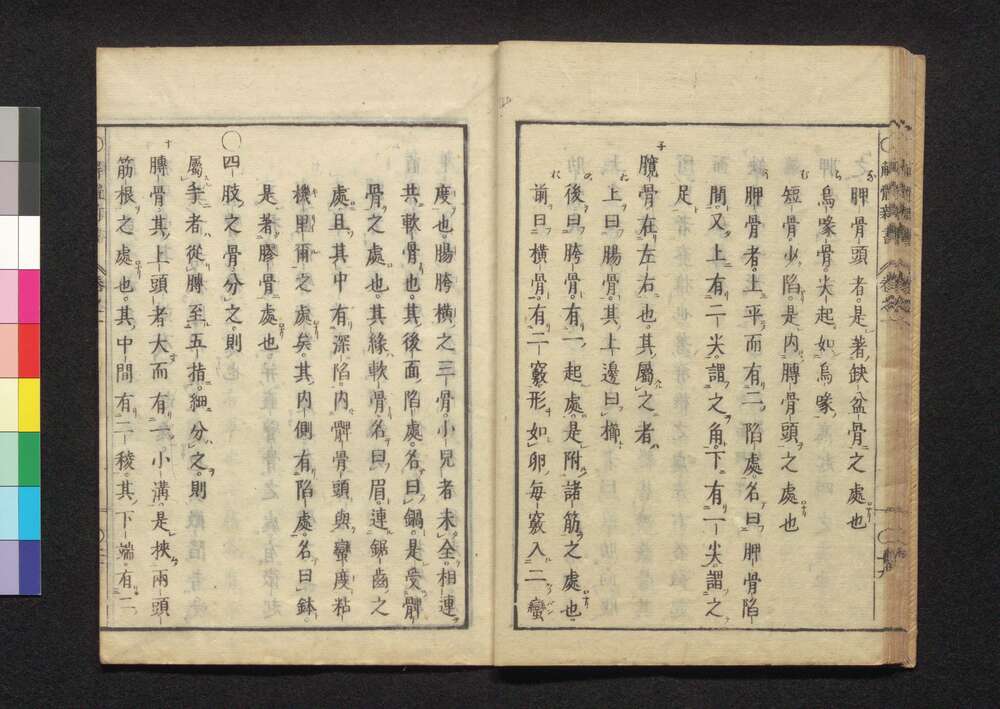 胛骨頭者是著缺盆骨之處也
烏喙骨尖起如烏喙
短骨少陷是内膊骨頭之處也
胛骨者上平而有二陷處名曰胛骨陷
間又上有二尖謂之角下有一尖謂之
足
臗骨在左右也其屬之者
上曰腸骨其上邊曰櫛
後曰胯骨有一起處是附諸筋之處也
前曰横骨有二竅形如卵每竅入二蠻
度也腸胯横之三骨小兒者未全相連
共軟骨也其後面陷處名曰鍋是受髀
骨之處也其緣軟骨名曰眉連鋸齒之
處且其中有深陷内髀骨頭與蠻度粘
機里爾之處矣其内側有陷處名曰鉢
是著膠骨處也
〇四肢之骨分之則
屬手者從膊至五指細分之則
膊骨其上頭者大而有小溝是挾兩頭
筋根之處也其中間有二稜其下端有二